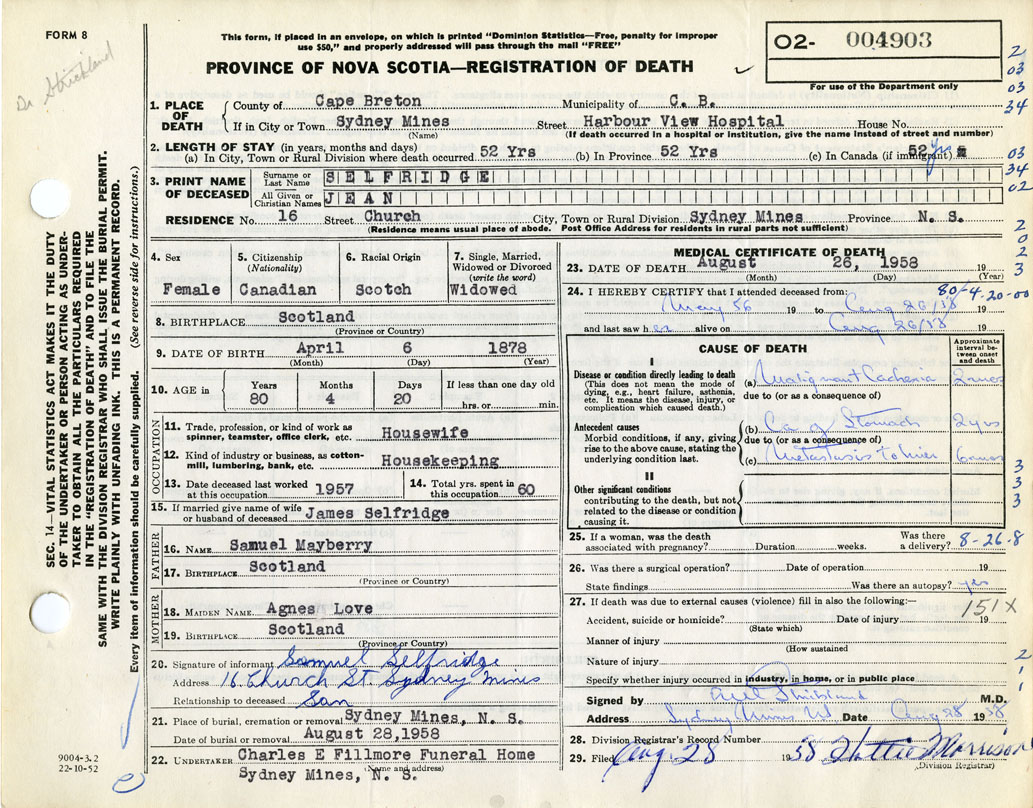 FORM 8
Dr Strickland
This form, if placed in an envelope, on which is printed "Dominion Statistics—Free, penalty for improper
use $50," and properly addressed will pass through the mail "FREE"
PROVINCE OF NOVA SCOTIA—REGISTRATION OF DEATH
02- 004903
For use of the Department only
2
03
03
34
03
34
02
2
0
2
3
SEC. 14—VITAL STATISTICS ACT MAKES IT THE DUTY
OF THE UNDERTAKER OR PERSON ACTING AS UNDER-
TAKER TO OBTAIN ALL THE PARTICULARS REQUIRED
IN THE "REGISTRATION OF DEATH" AND TO FILE THE
SAME WITH THE DIVISION REGISTRAR WHO SHALL ISSUE THE BURIAL PERMIT.
WRITE PLAINLY WITH UNFADING INK. THIS IS A PERMANENT RECORD.
Every item of information should be carefully supplied. (See reverse side for instructions.)
1. PLACE OF DEATH
County of Cape Breton Municipality of C. B.
If in City or Town Sydney Mines Street Harbour View Hospital House No.
(Name) (If death occurred in a hospital or institution, give the name instead of street and number)
2. LENGTH OF STAY (in years, months and days)
(a) In City, Town or Rural Division where death occurred 52 Yrs (b) In Province 52 Yrs (c) In Canada (if immigrant) 52 yrs
3. PRINT NAME OF DECEASED
Surname or Last Name SELFRIDGE
All Given or Christian Names JEAN
RESIDENCE No. 16 Street Church City, Town or Rural Division Sydney Mines Province N. S.
(Residence means usual place of abode. Post Office Address for residents in rural parts not sufficient)
4. Sex
Female
5. Citizenship
(Nationality)
Canadian
6. Racial Origin
Scotch
7. Single, Married,
Widowed or Divorced
(write the word)
Widowed
8. BIRTHPLACE Scotland
(Province or Country)
9. DATE OF BIRTH April 6 1878
(Month) (Day) (Year)
10. AGE in
Years Months Days If less than one day old
80 4 20 hrs. or min.
OCCUPATION
11. Trade, profession, or kind of work as
spinner, teamster, office clerk, etc. Housewife
12. Kind of industry or business, as cotton-
mill, lumbering, bank, etc. Housekeeping
13. Date deceased last worked
at this occupation 1957
14. Total yrs. spent in
this occupation 60
15. If married give name of wife
or husband of deceased James Selfridge
FATHER
16. NAME Samuel Mayberry
17. BIRTHPLACE Scotland
(Province or Country)
MOTHER
18. MAIDEN NAME Agnes Love
19. BIRTHPLACE Scotland
(Province or Country)
20. Signature of informant Samuel Selfridge
Address 16 Church St. Sydney Mines
Relationship to deceased Son
21. Place of burial, cremation or removal Sydney Mines, N. S.
Date of burial or removal August 28,1958
22. UNDERTAKER Charles E Fillmore Funeral Home
(Name and address)
Sydney Mines, N. S.
9004-3.2
22-10-52
MEDICAL CERTIFICATE OF DEATH
23. DATE OF DEATH August 26, 1958 19
(Month) (Day) (Year)
24. I HEREBY CERTIFY that I attended deceased from: 80-4-20-00
May 56 19 to Aug 26/58 19
and last saw her alive on Aug 26/58 19
CAUSE OF DEATH
Approximate
interval be-
tween onset
and death
I
Disease or condition directly leading to death
(This does not mean the mode of
dying, e.g., heart failure, asthenia,
etc. It means the disease, injury, or
complication which caused death.)
(a) Malignant Cachexia 2 mos
due to (or as a consequence of)
Antecedent causes
Morbid conditions, if any, giving
rise to the above cause, stating the
underlying condition last.
(b) Ca of Stomach 2 yrs
due to (or as a consequence of)
(c) Metastasis to liver 6 mos
II
Other significant conditions
contributing to the death, but not
related to the disease or condition
causing it.
3
3
3
3
25. If a woman, was the death
associated with pregnancy? Duration weeks. Was there
a delivery? 8-26-8
26. Was there a surgical operation? Date of operation 19
State findings Was there an autopsy? yes
27. If death was due to external causes (violence) fill in also the following:—
151X
Accident, suicide or homicide? Date of injury 19
(State which)
Manner of injury
(How sustained
Nature of injury
Specify whether injury occurred in industry, in home, or in public place
2
1
1
Signed by Strickland M.D.
Address Sydney Mines NS Date Aug 28 1958
28. Division Registrar's Record Number
29. Filed Aug. 28 1958 Hattie Morrison
(Division Registrar)